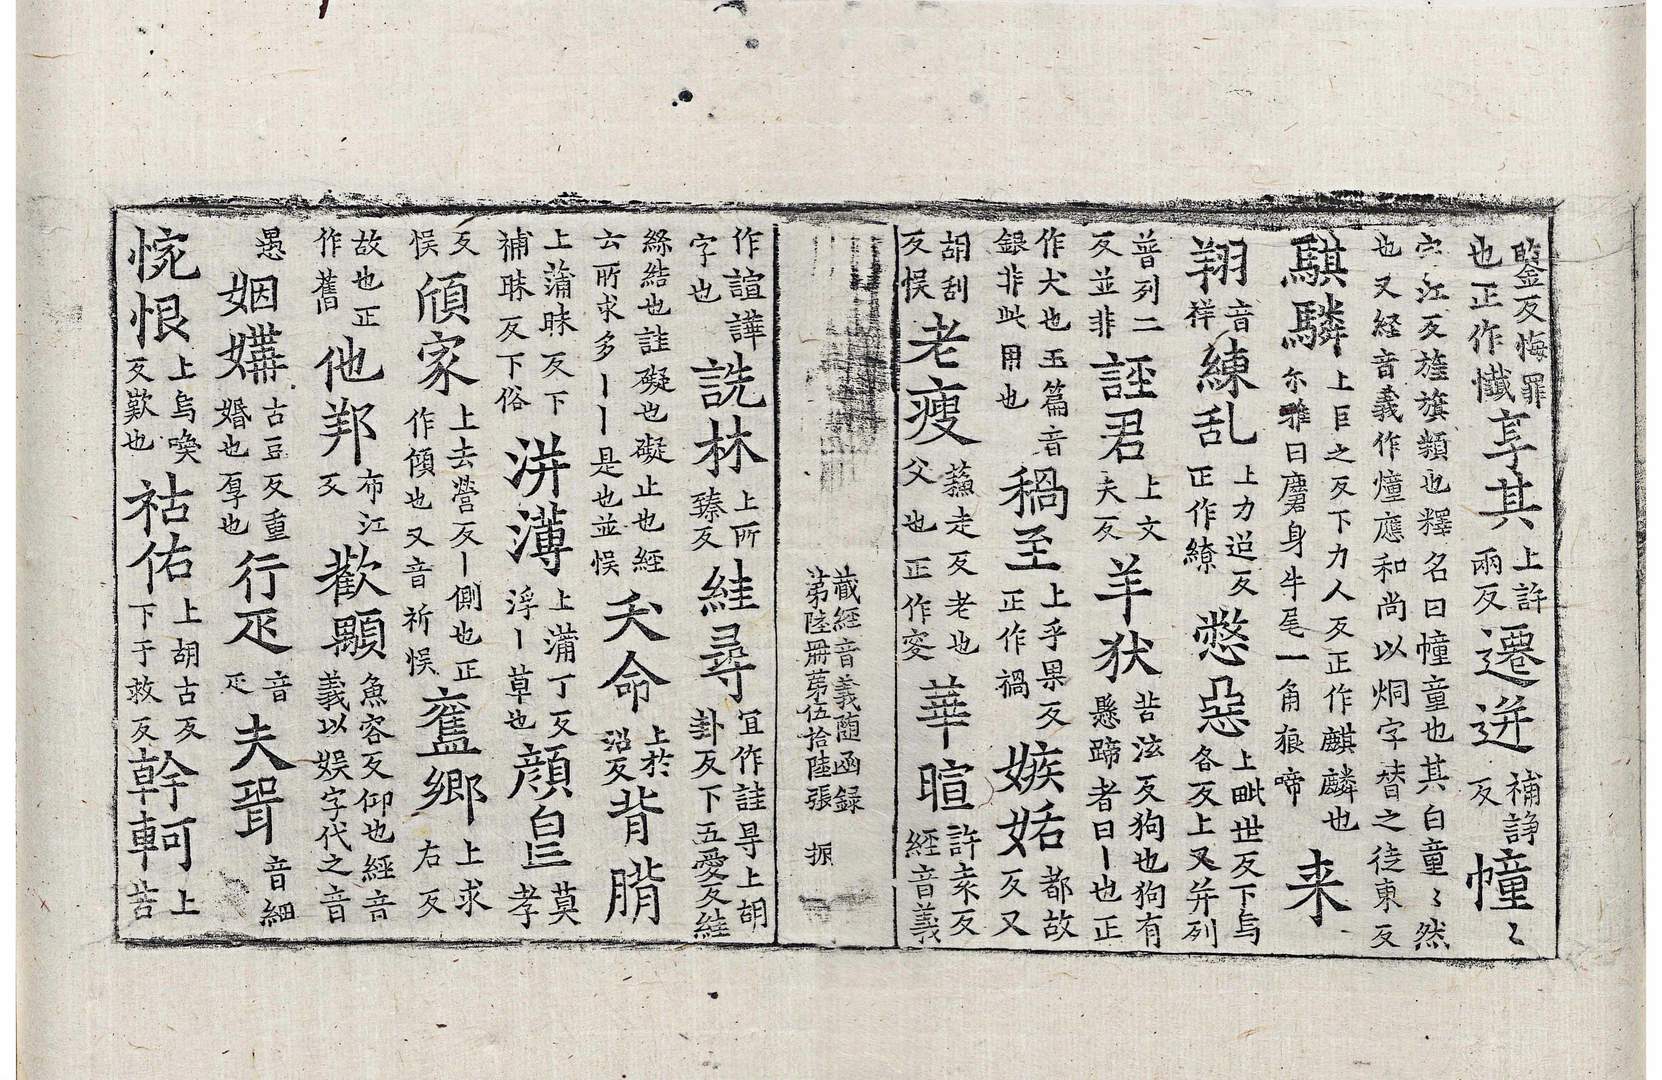 鍳反悔罪也正作懺享其上許兩反遷迸補諍反幢〻
宅江反旌旗類也釋名曰幢童也其白童〻然也又経音義作㠉應和尚以炯字替之徒東反
騏驎上巨之反下力人反正作麒麟也尓雅曰麐身牛尾一角狼啼来
翔音祥練乱上力迢反正作繚憋惡上毗世反下烏各反上又并列
普列二反並非誣君上文夫反羊狄苦泫反狗也狗有懸蹄者曰丨也正
作犬也玉篇音銀非此用也䅥至上乎果反正作禍嫉妬都故反又
胡刮反悮老瘦蘓走反老也父也正作叜華暄許袁反經音義
藏經音義随函録
第陸冊第伍拾陸張 振
作諠譁字也詵林上所臻反絓尋宜作註㝵上胡卦反下五愛反絓
絲結也註礙也礙止也經云所求多丨丨是也並悮夭命上於沼反背
上蒲昧反下補昧反下俗洴薄上蒲丁反浮丨草也顔莫孝
反悮頎家上去營反丨側也正作傾也又音祈悮舊鄉上求右反
故也正作舊他邦布江反歡顒魚容反仰也經音義以娯字代之音
愚姻媾古豆反重婚也厚也行疋音疋夫壻音細
惋恨上烏喚反歎也祜佑上胡古反下于救反幹軻上苦